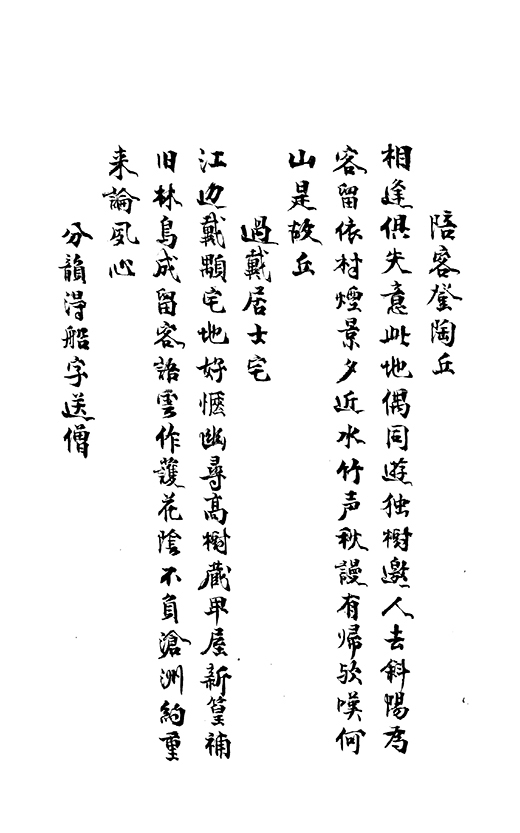 陪客登陶丘
相逢俱失意此地偶同遊独樹邀人去斜陽為
客留依村煙景夕近水竹声秋謾有帰欤嘆何
山是故丘
過戴居士宅
江边戴顒宅地好惬幽尋高樹蔵甲屋新篁補
旧林鳥成留客語雲作護花陰不負滄洲約重
来論夙心
分韻淂船字送僧